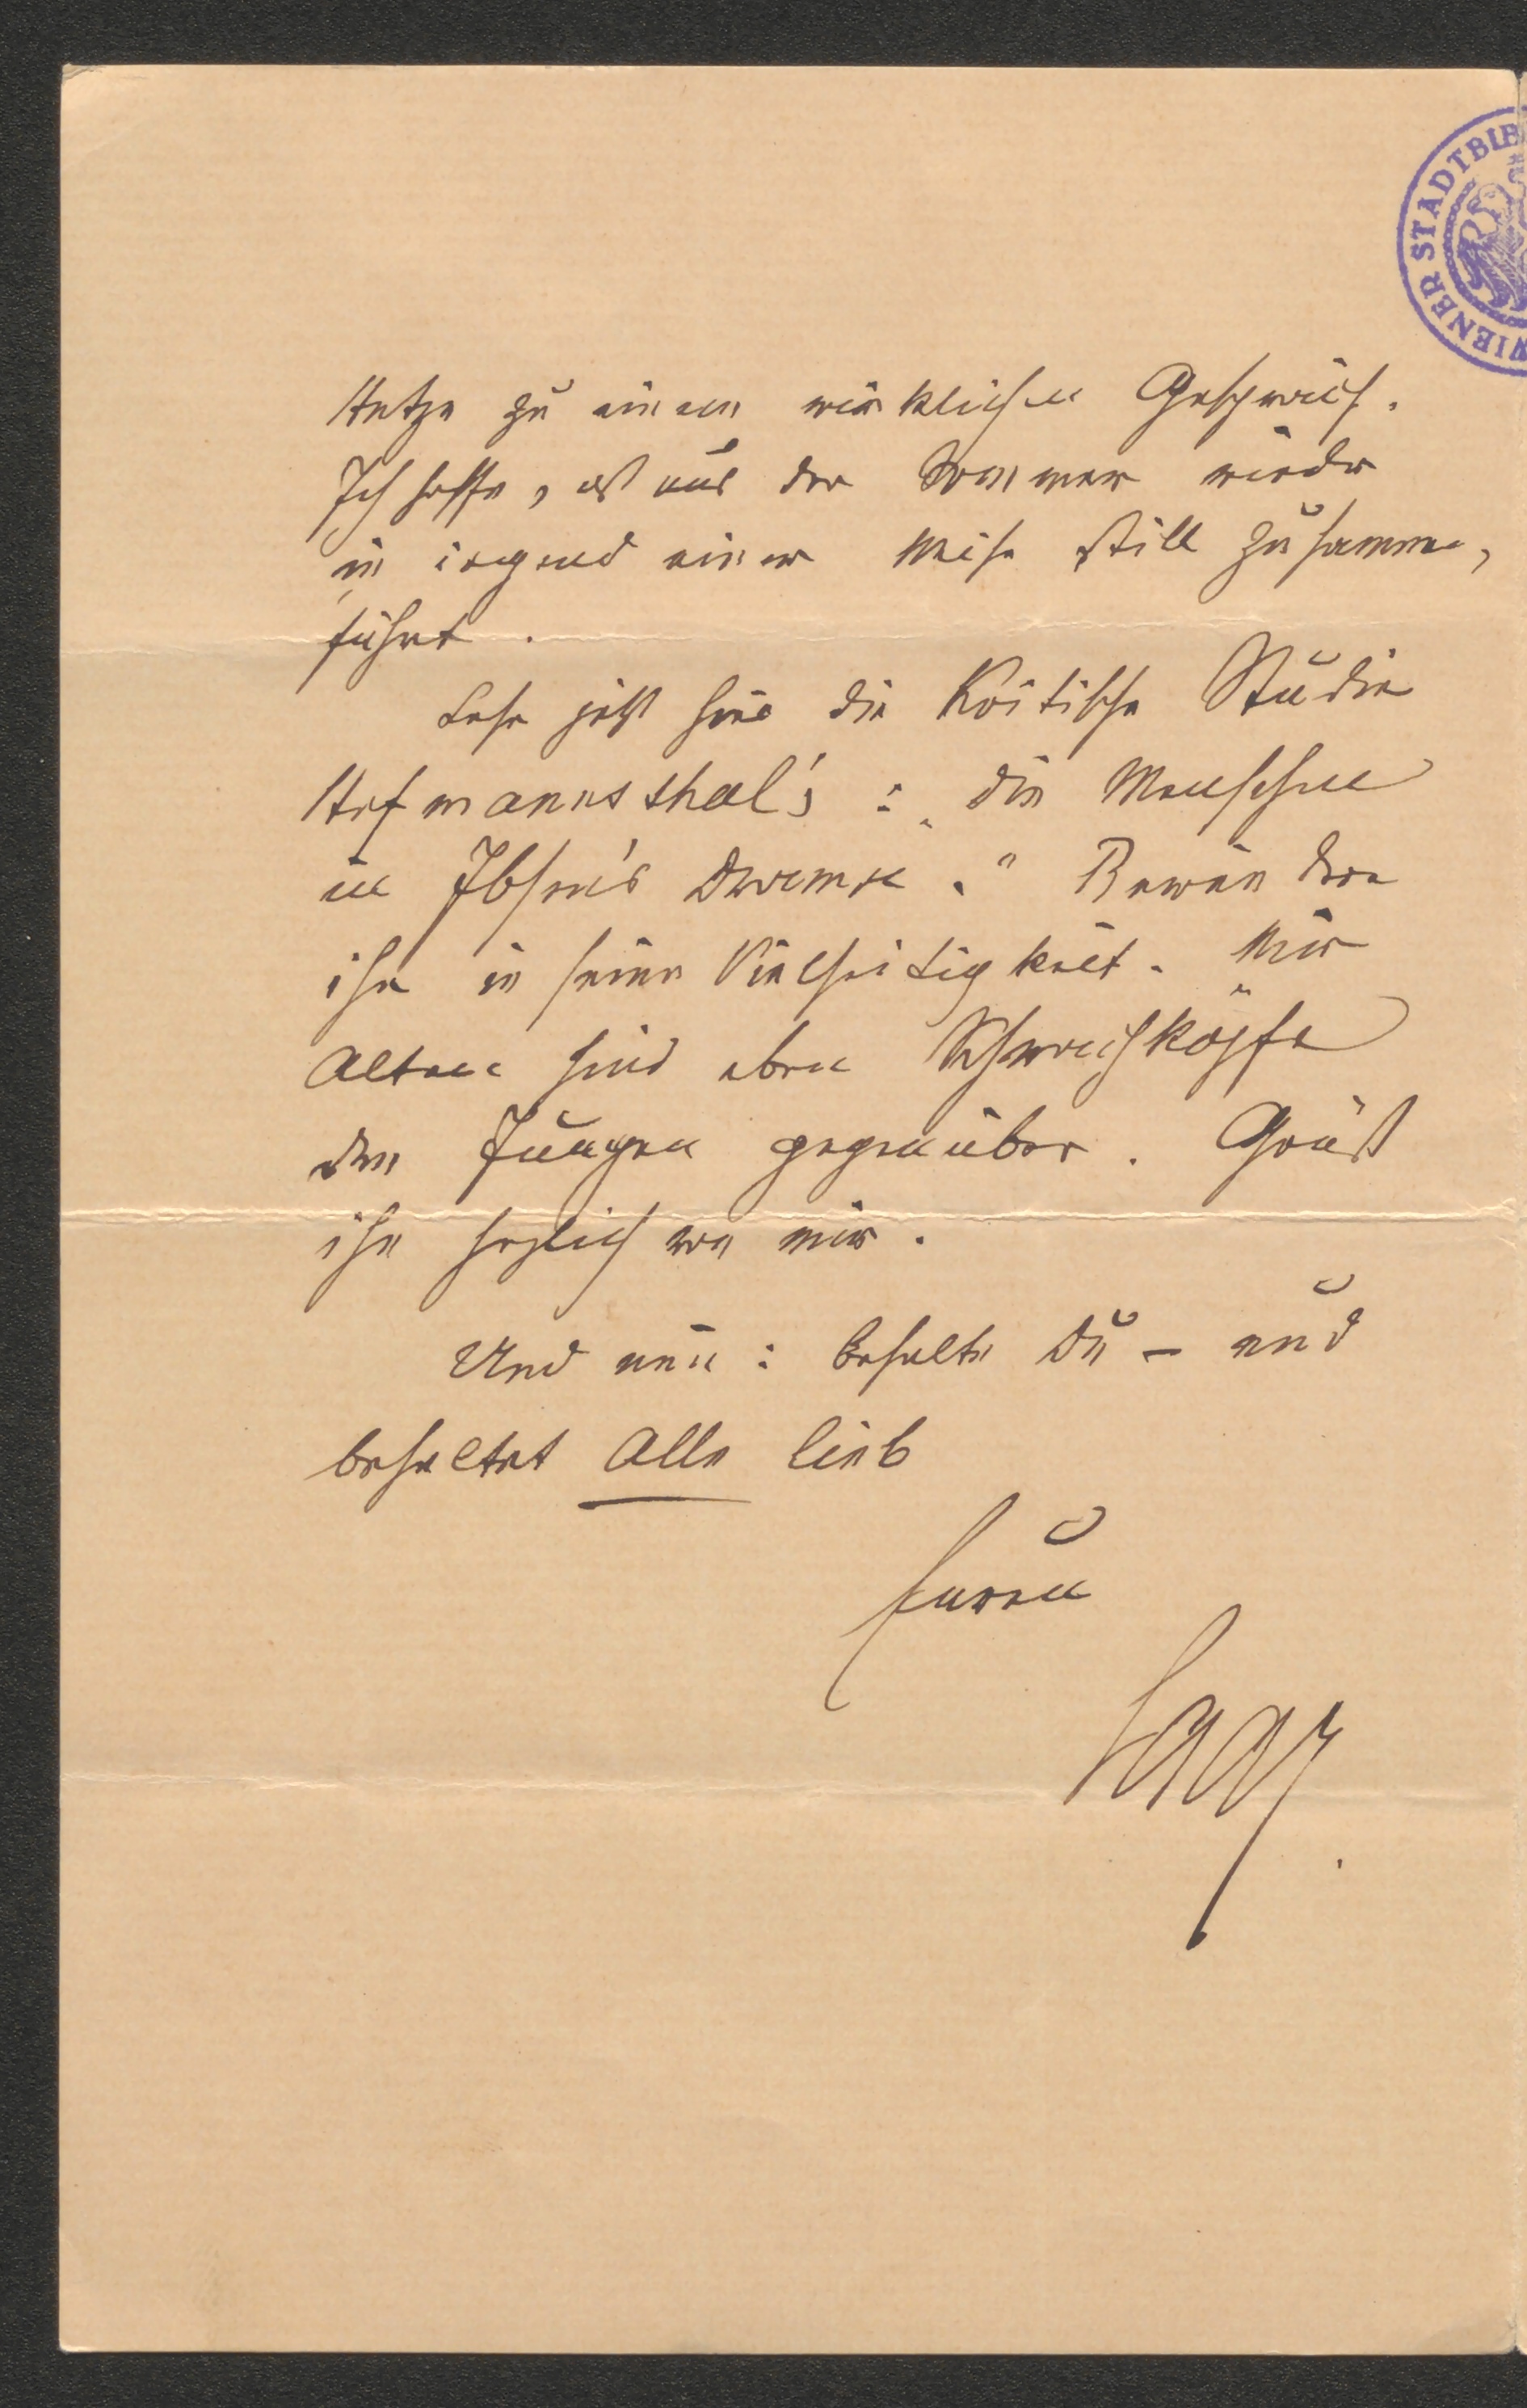 WIENER STADTBIB
Hetze zu einem wirklichen Gespräch.
Ich hoffe, daß uns der Sommer wieder
in irgend einer Weise still zusammen,
führt.
Lese jetzt hier die Kritische Studie
Hofmannsthal's: „die Menschen
in Ibsen's Dramen." Bewundere
ihn in seiner Vielseitigkeit. Wir
Alten sind eben Schwachköpfe
den Jungen gegenüber. Grüß
ihn herzlich von mir.
Und nun: behalte Du – und
behaltet Alle lieb
Euren
Saar.